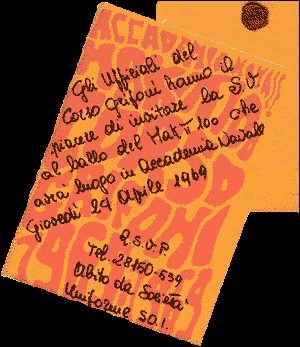 ACCADEMIA
Gli Ufficiali del
Corso Grifoni hanno il
piacere di invitare la S.V.
al ballo del Mak π 100 che
avrà luogo in Accademia Navale
Giovedì 24 Aprile 1969
R.S.V.P.
Tel. 28150-539
Abito da Società
Uniforme SO.1.